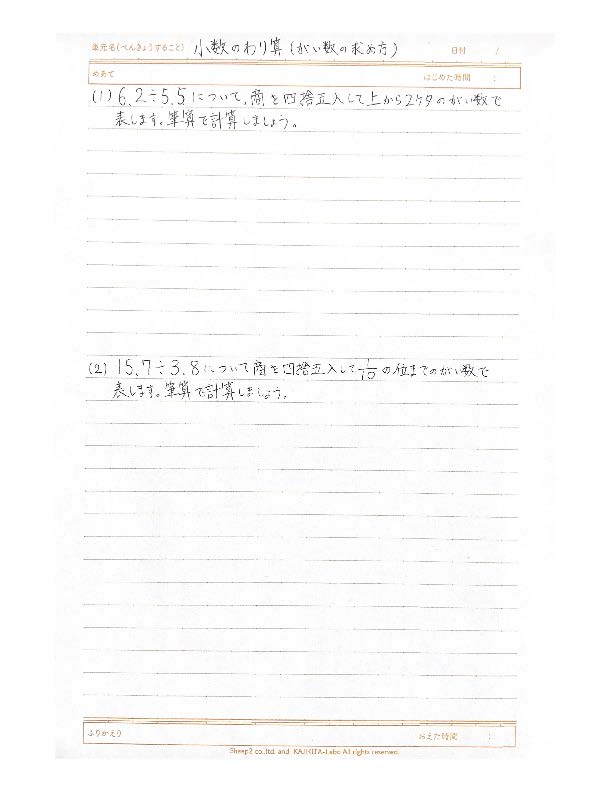 単元名(べんきょうすること) 小数のわり算(がい数の求め方) 日付 /
めあて はじめた時間 :
(1) 6.2÷5.5について,商を四捨五入して上から2ケタのがい数で
表します。筆算で計算しましょう。
(2) 15.7÷3.8について商を四捨五入して1/10の位までのがい数で
表します。筆算で計算しましょう。
ふりかえり おえた時間 :
Sheep2 co.,ltd. and KAJIKITA-Labo All rights reserved.